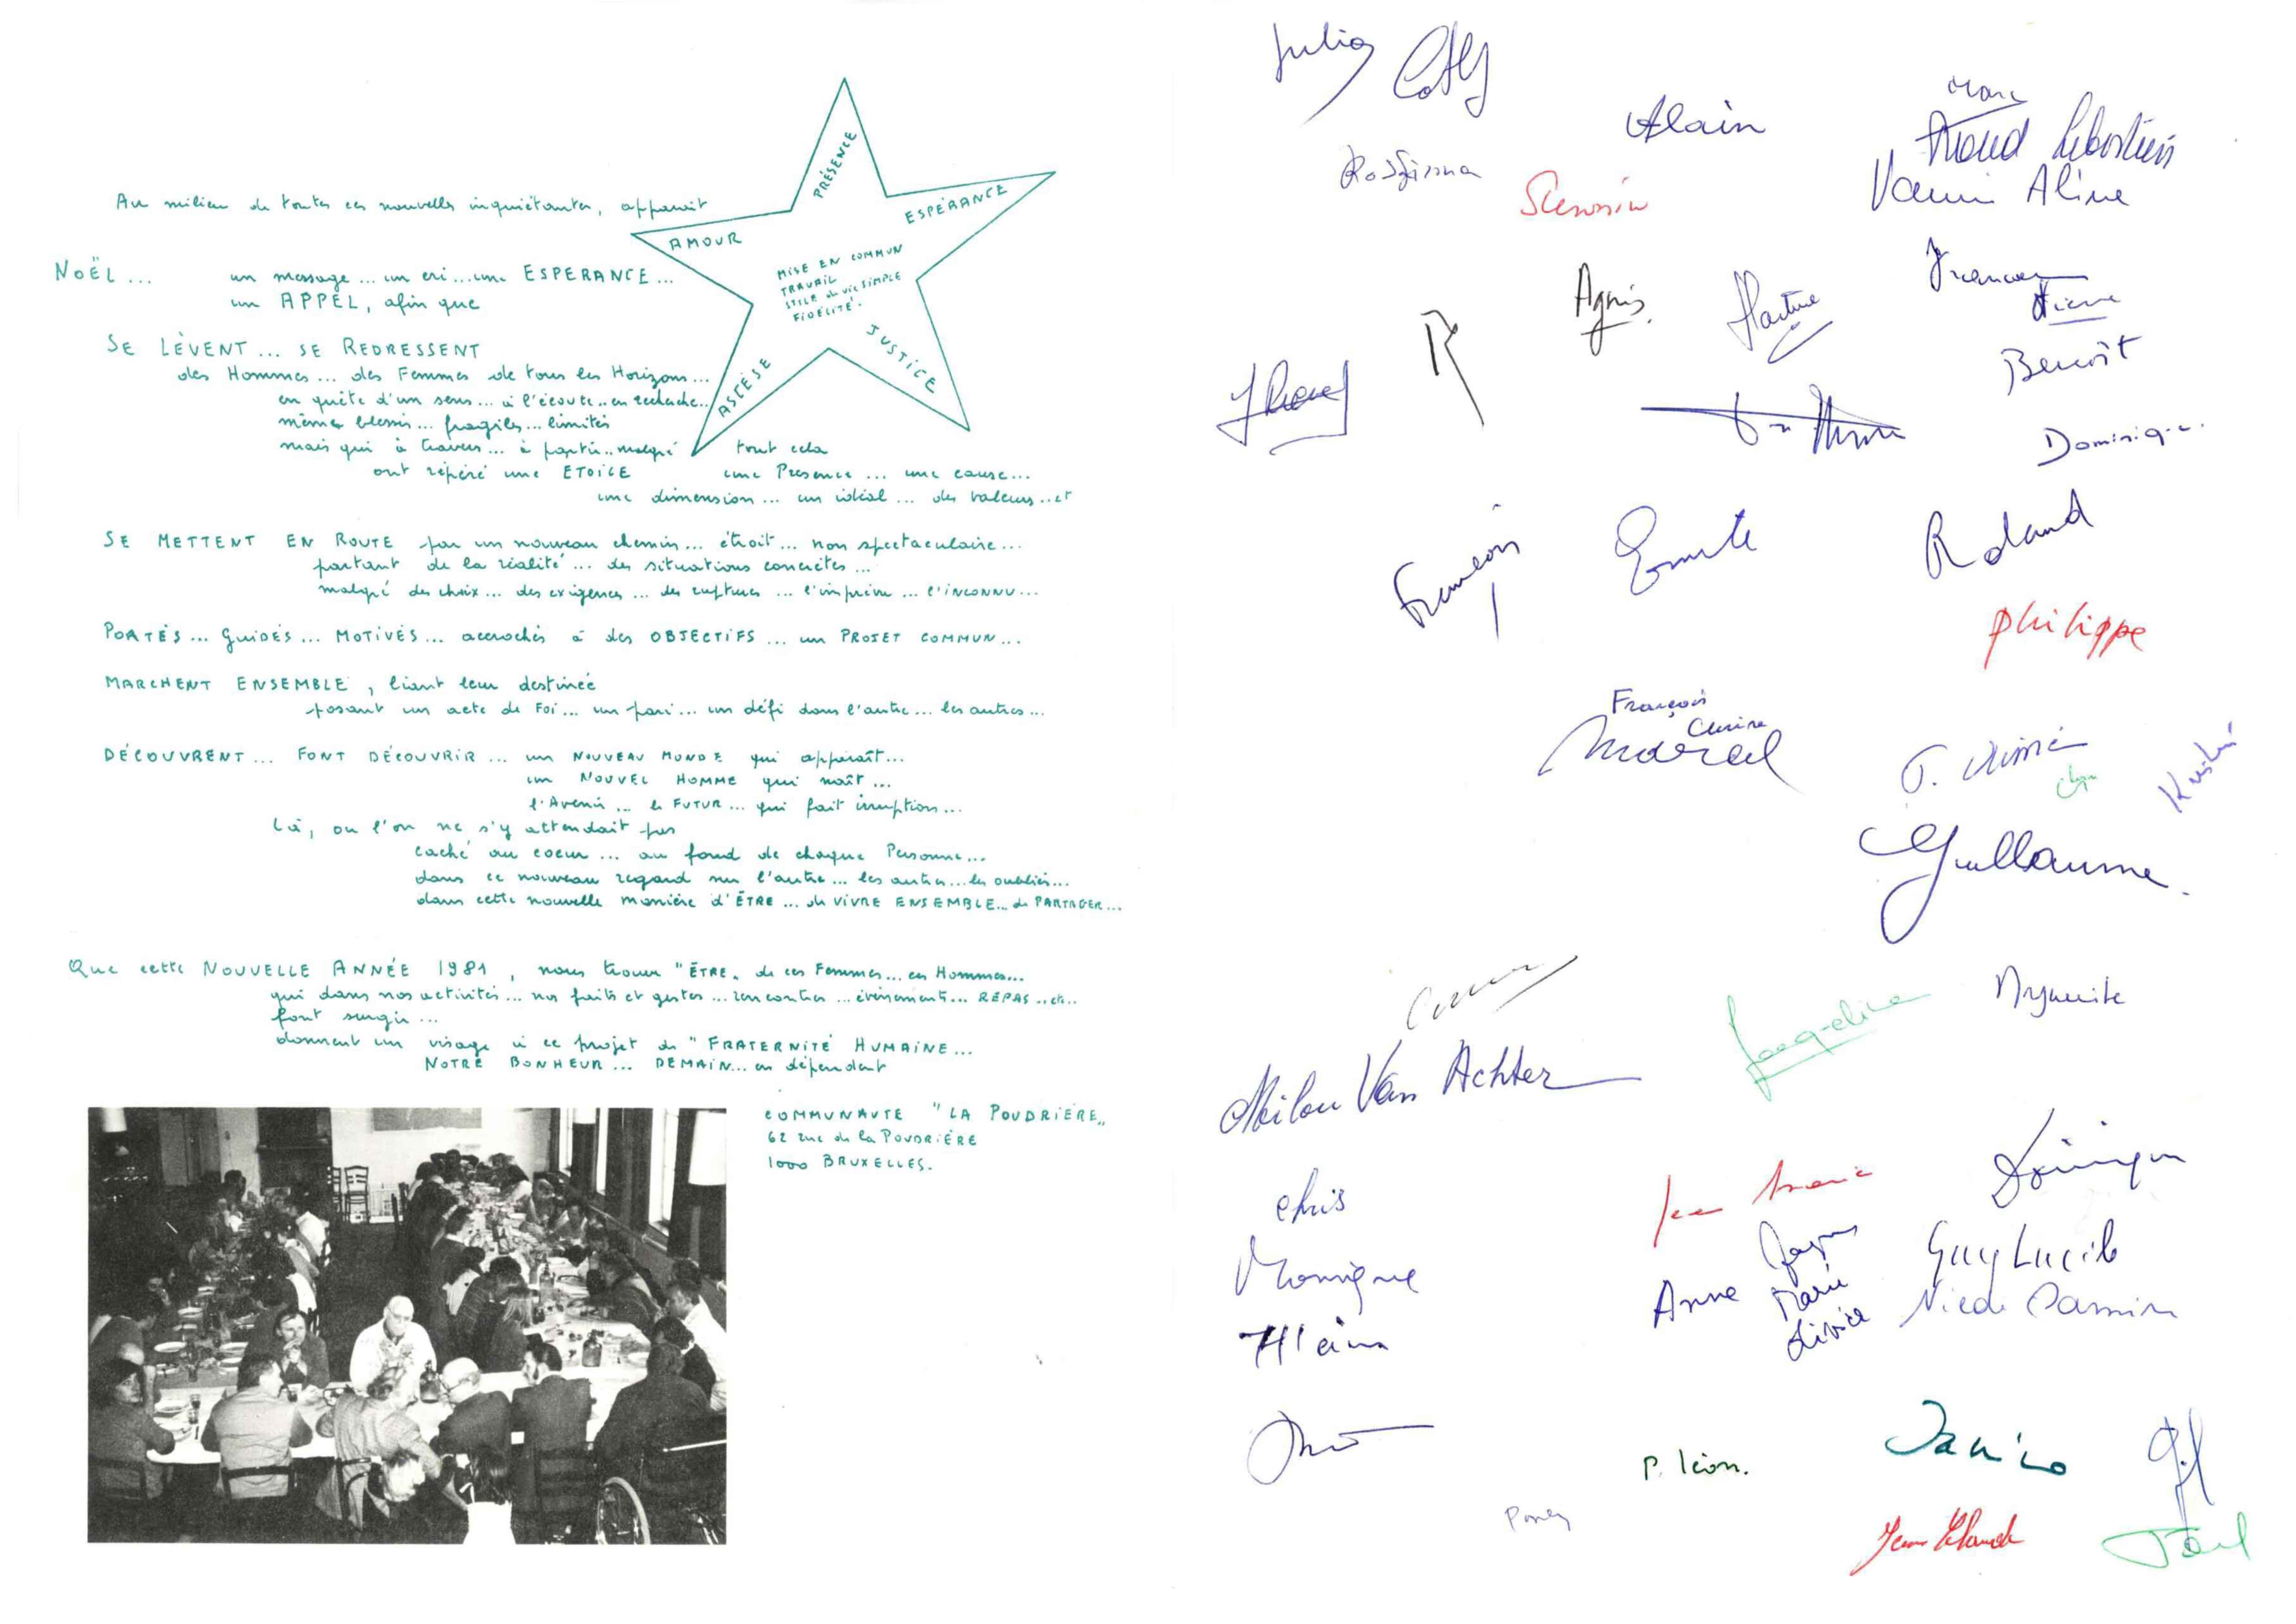 PRÉSENCE
ESPÉRANCE
AMOUR
MISE EN COMMUN
TRAVAIL
STILE de vie SIMPLE
FIDÉLITÉ.
JUSTICE
ASCÈSE
Au milieu de toutes ces nouvelles inquiétantes, apparait
NOËL... un message... un cri... une ESPERANCE...
un APPEL, afin que
SE LÈVENT... SE REDRESSENT
des Hommes... des Femmes de tous les Horizons...
en quête d'un sens... à l'écoute.. en recherche..
même blessés... fragiles... limités
mais qui à travers... à partir.. malgré tout cela
ont répéré une ETOILE une Presence... une cause...
une dimension... un idéal... des valeurs... et
SE METTENT EN ROUTE par un nouveau chemin... étroit... non spectaculaire...
partant de la réalité... des situations concrètes...
malgré des choix... des exigences... des ruptures... l'imprévu... l'INCONNU...
PORTÉS... GUIDÉS... MOTIVÉS... accrochés à des OBJECTIFS... un PROJET COMMUN...
MARCHENT ENSEMBLE, liant leur destinée
posant un acte de Foi... un pari... un défi dans l'autre... les autres...
DÉCOUVRENT... FONT DÉCOUVRIR... un NOUVEAU MONDE qui apparaît...
un NOUVEL HOMME qui naît...
l'Avenir... le FUTUR... qui fait irruption...
là, ou l'on ne s'y attendait pas
caché au coeur... au fond de chaque Personne...
dans ce nouveau regard sur l'autre... les autres... les oubliés...
dans cette nouvelle manière d'ÊTRE... de VIVRE ENSEMBLE... de PARTAGER...
Que cette NOUVELLE ANNÉE 1981, nous trouve "ÊTRE" de ces Femmes... ces Hommes...
qui dans nos activités... nos faits et gestes... rencontres... événements... REPAS.. etc..
font surgir...
donnent un visage à ce projet de "FRATERNITÉ HUMAINE...
NOTRE BONHEUR... DEMAIN... en dépendent
COMMUNAUTE "LA POUDRIÈRE"
62 rue de la POUDRIÈRE
1000 BRUXELLES.
Julia
Cathy
Alain
Marc
Sébastien
Vanni Aline
Agnès.
Martine
Pierre
Benoît
Dominique.
François
Emile
Roland
Philippe
François
Marcel
Guillaume.
Milou Van Achter
Jacqueline
Chris
Jean Marie
Dominique
Monique
Anne
Marie
Livia
Guy Lucile
Alain
P. léon.
Janine
Jean Claude
Paul